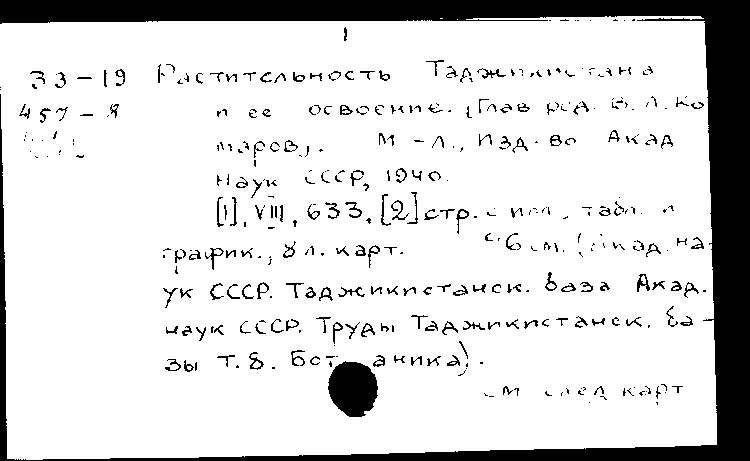 1
33-19 Растительность Таджикистана
457-8 и ее освоение. (Глав ред. В. Л. Ко
маров). М-Л., Изд-во Акад
Наук СССР, 1940.
[1], VIII, 633, [2] стр. с илл., табл. и
график., 8 л. карт. 26 см. (Акад. На-
ук СССР. Таджикистанск. База Акад.
наук СССР. Труды Таджикистанск. ба-
зы т. 8. Ботаника).
см след карт